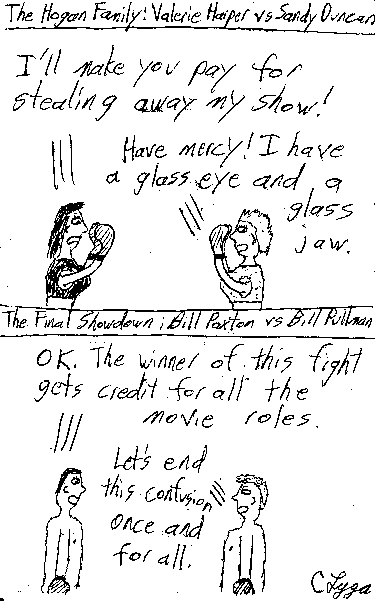 The Hogan Family: Valerie Harper vs Sandy Duncan
I'll make you pay for
stealing away my show!
Have mercy! I have
a glass eye and a
glass
jaw.
The Final Showdown: Bill Paxton vs Bill Pullman
OK. The winner of this fight
gets credit for all the
movie roles.
Let's end
this confusion
once and
for all.
C Lyga